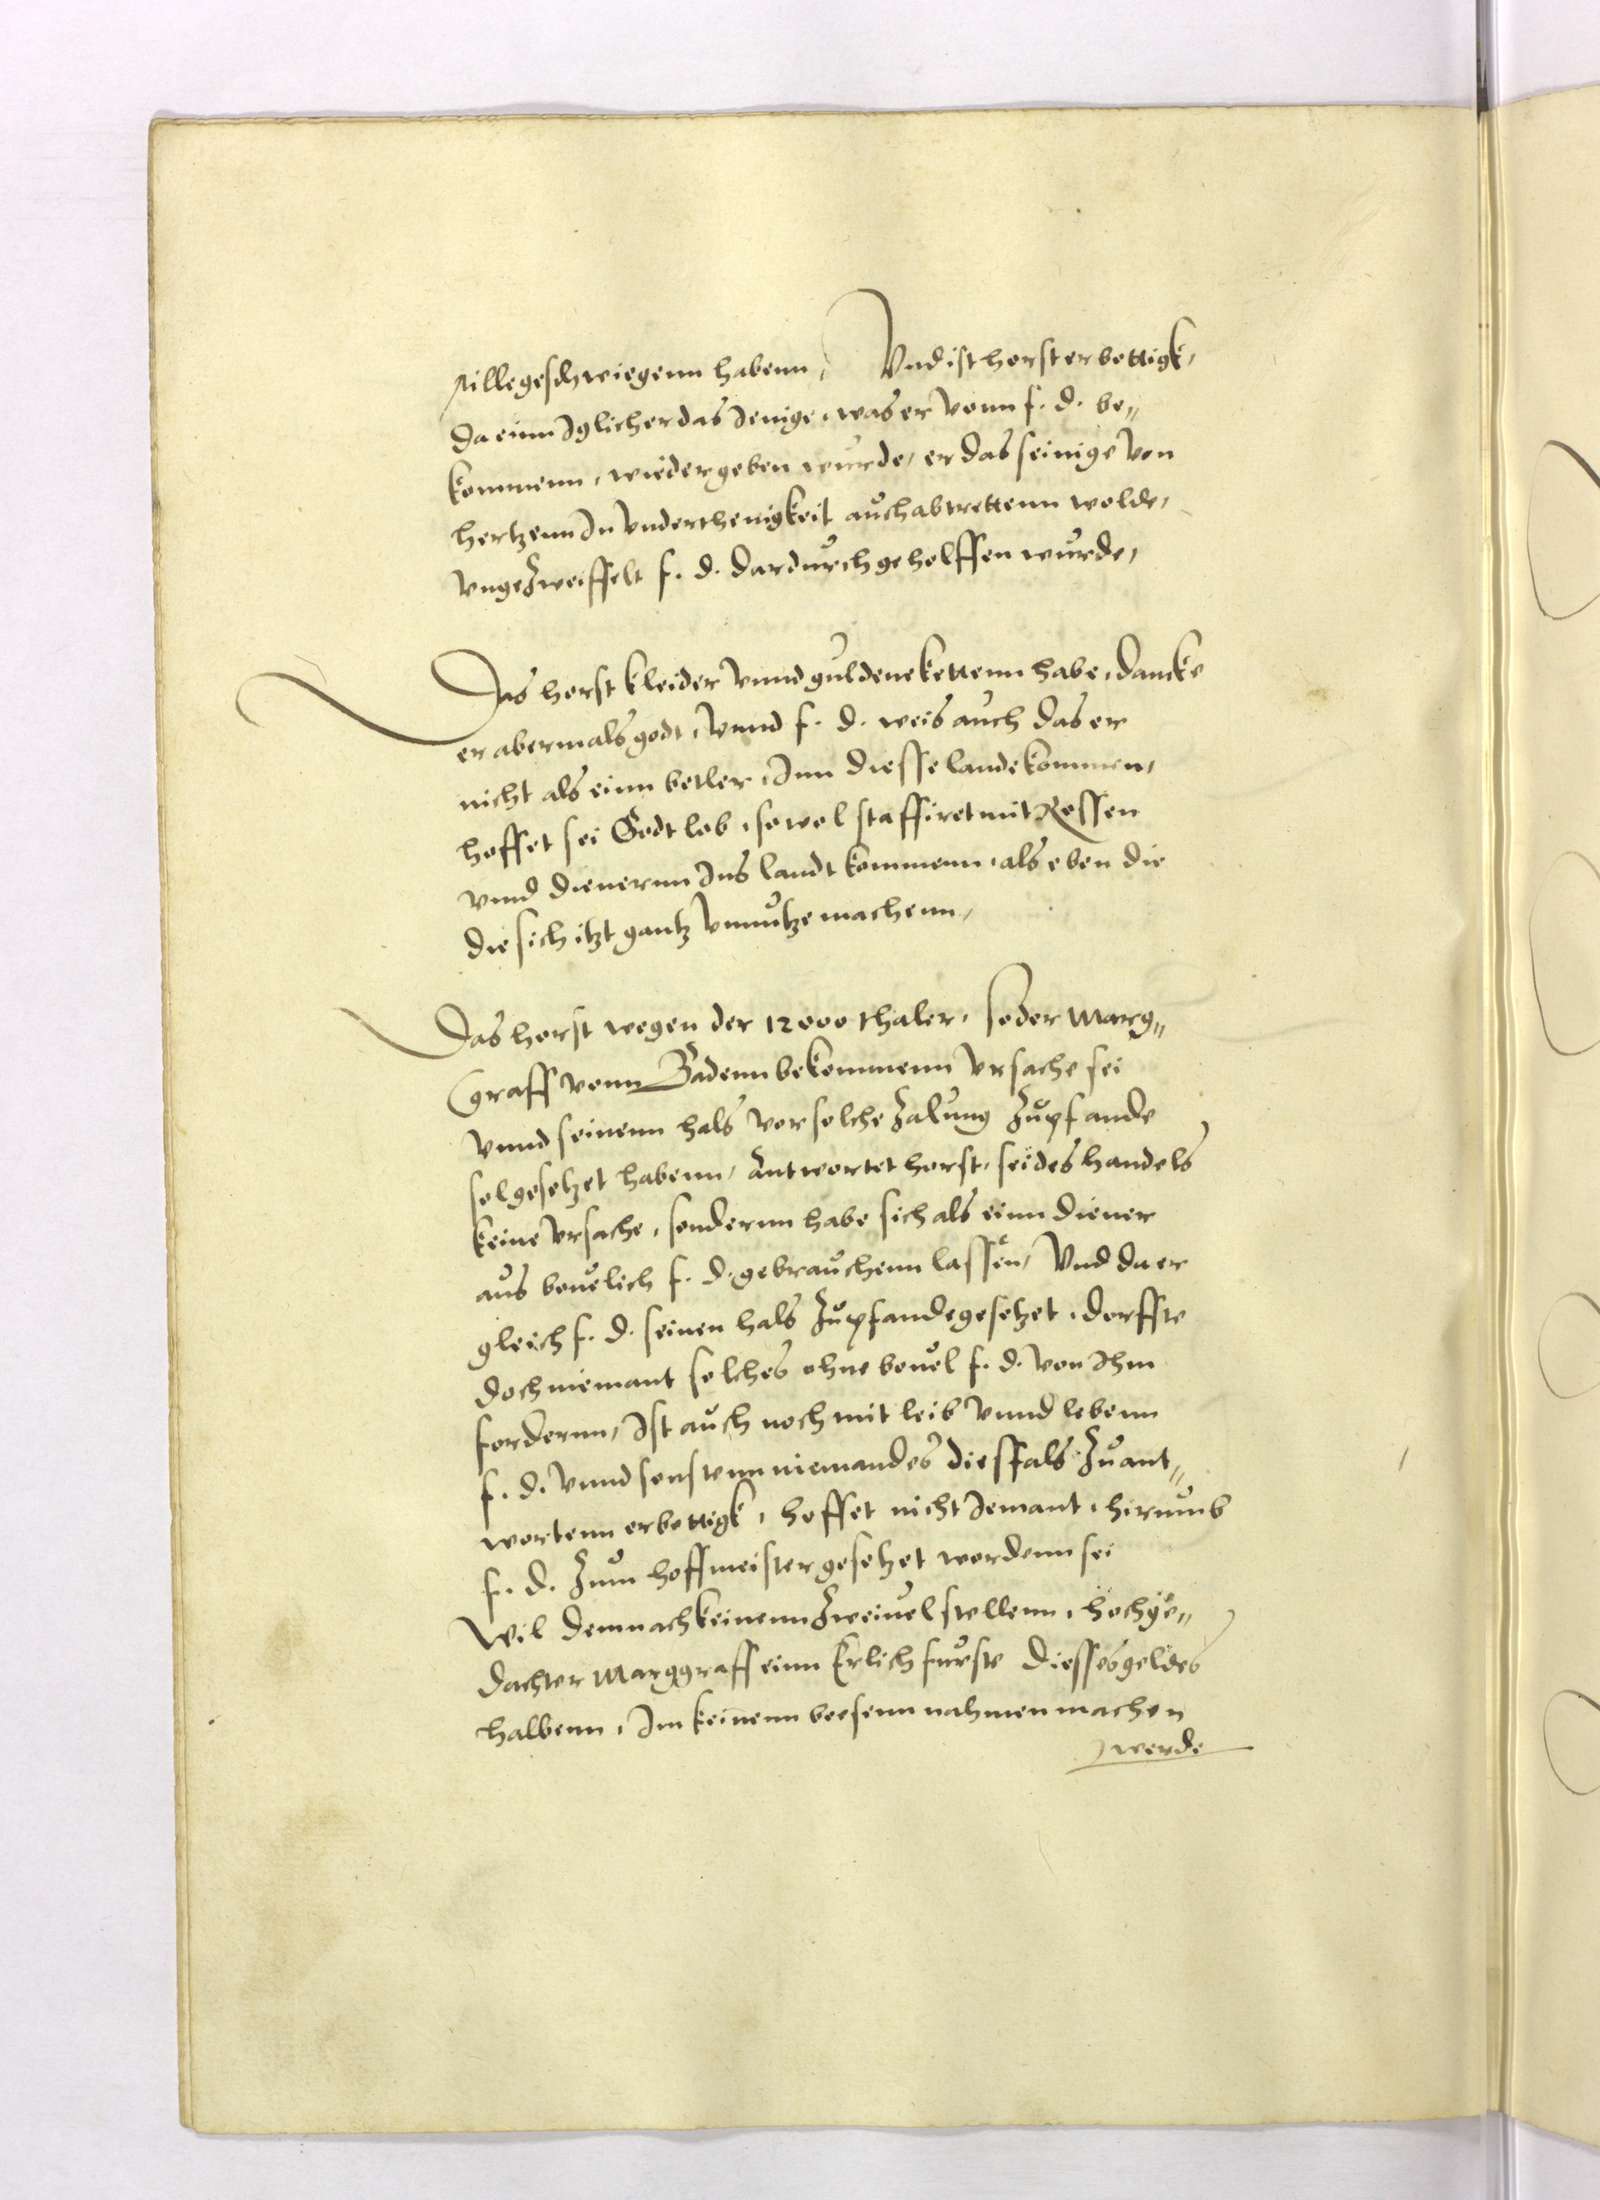 stillegeschwiegenn habenn, Vnd ist horst erbottigk,
da einn Iglicher das Ienige, was er vonn f. d. be„
kommenn, wiedergeben wurde, er das seinige von
hertzenn In vnderthenigkeit auch abtrettenn wolde,
vngezweiffelt f. d. dardurch geholffen wurde,
Das horst kleider vnnd guldene kettenn habe, dancke
er abermals godt, vnnd f. d. weis auch das er
nicht als einn betler, Inn diesse lande kommen,
hoffet sei Godt lob, so wol staffiret mit Rossen
vnnd dienernn Ins landt kommenn, als eben die
die sich itzt gantz vnnutze machenn,
Das horst wegen der 12000 thaler, so der Marg„
Graff vonn Badenn bekommenn vrsache sei
vnnd seinenn hals vor solche Zalung zu pfande
sol gesetzet habenn, Antwortet horst, sei des handels
keine vrsache, sondernn habe sich als einn diener
aus beuelich f. d. gebrauchenn lassen, Vnd da er
gleich f. d. seinen hals zu pfande gesetzet, dorffte
doch niemant solches ohne beuel f. d. von Ihm
fordernn, Ist auch noch mit leib vnnd lebenn
f. d. vnnd sonstenn niemandes diesfals zu ant„
wortenn erbottigk, hoffet nicht Iemant, hirumb
f. d. zum hoffmeister gesetzet wordenn sei
Wil demnach keinenn zweiuel stellenn, hochge„
dachter Marggraff einn Erlich furste diesses geldes
halbenn, Im keinenn boesenn nahmen machen
werde